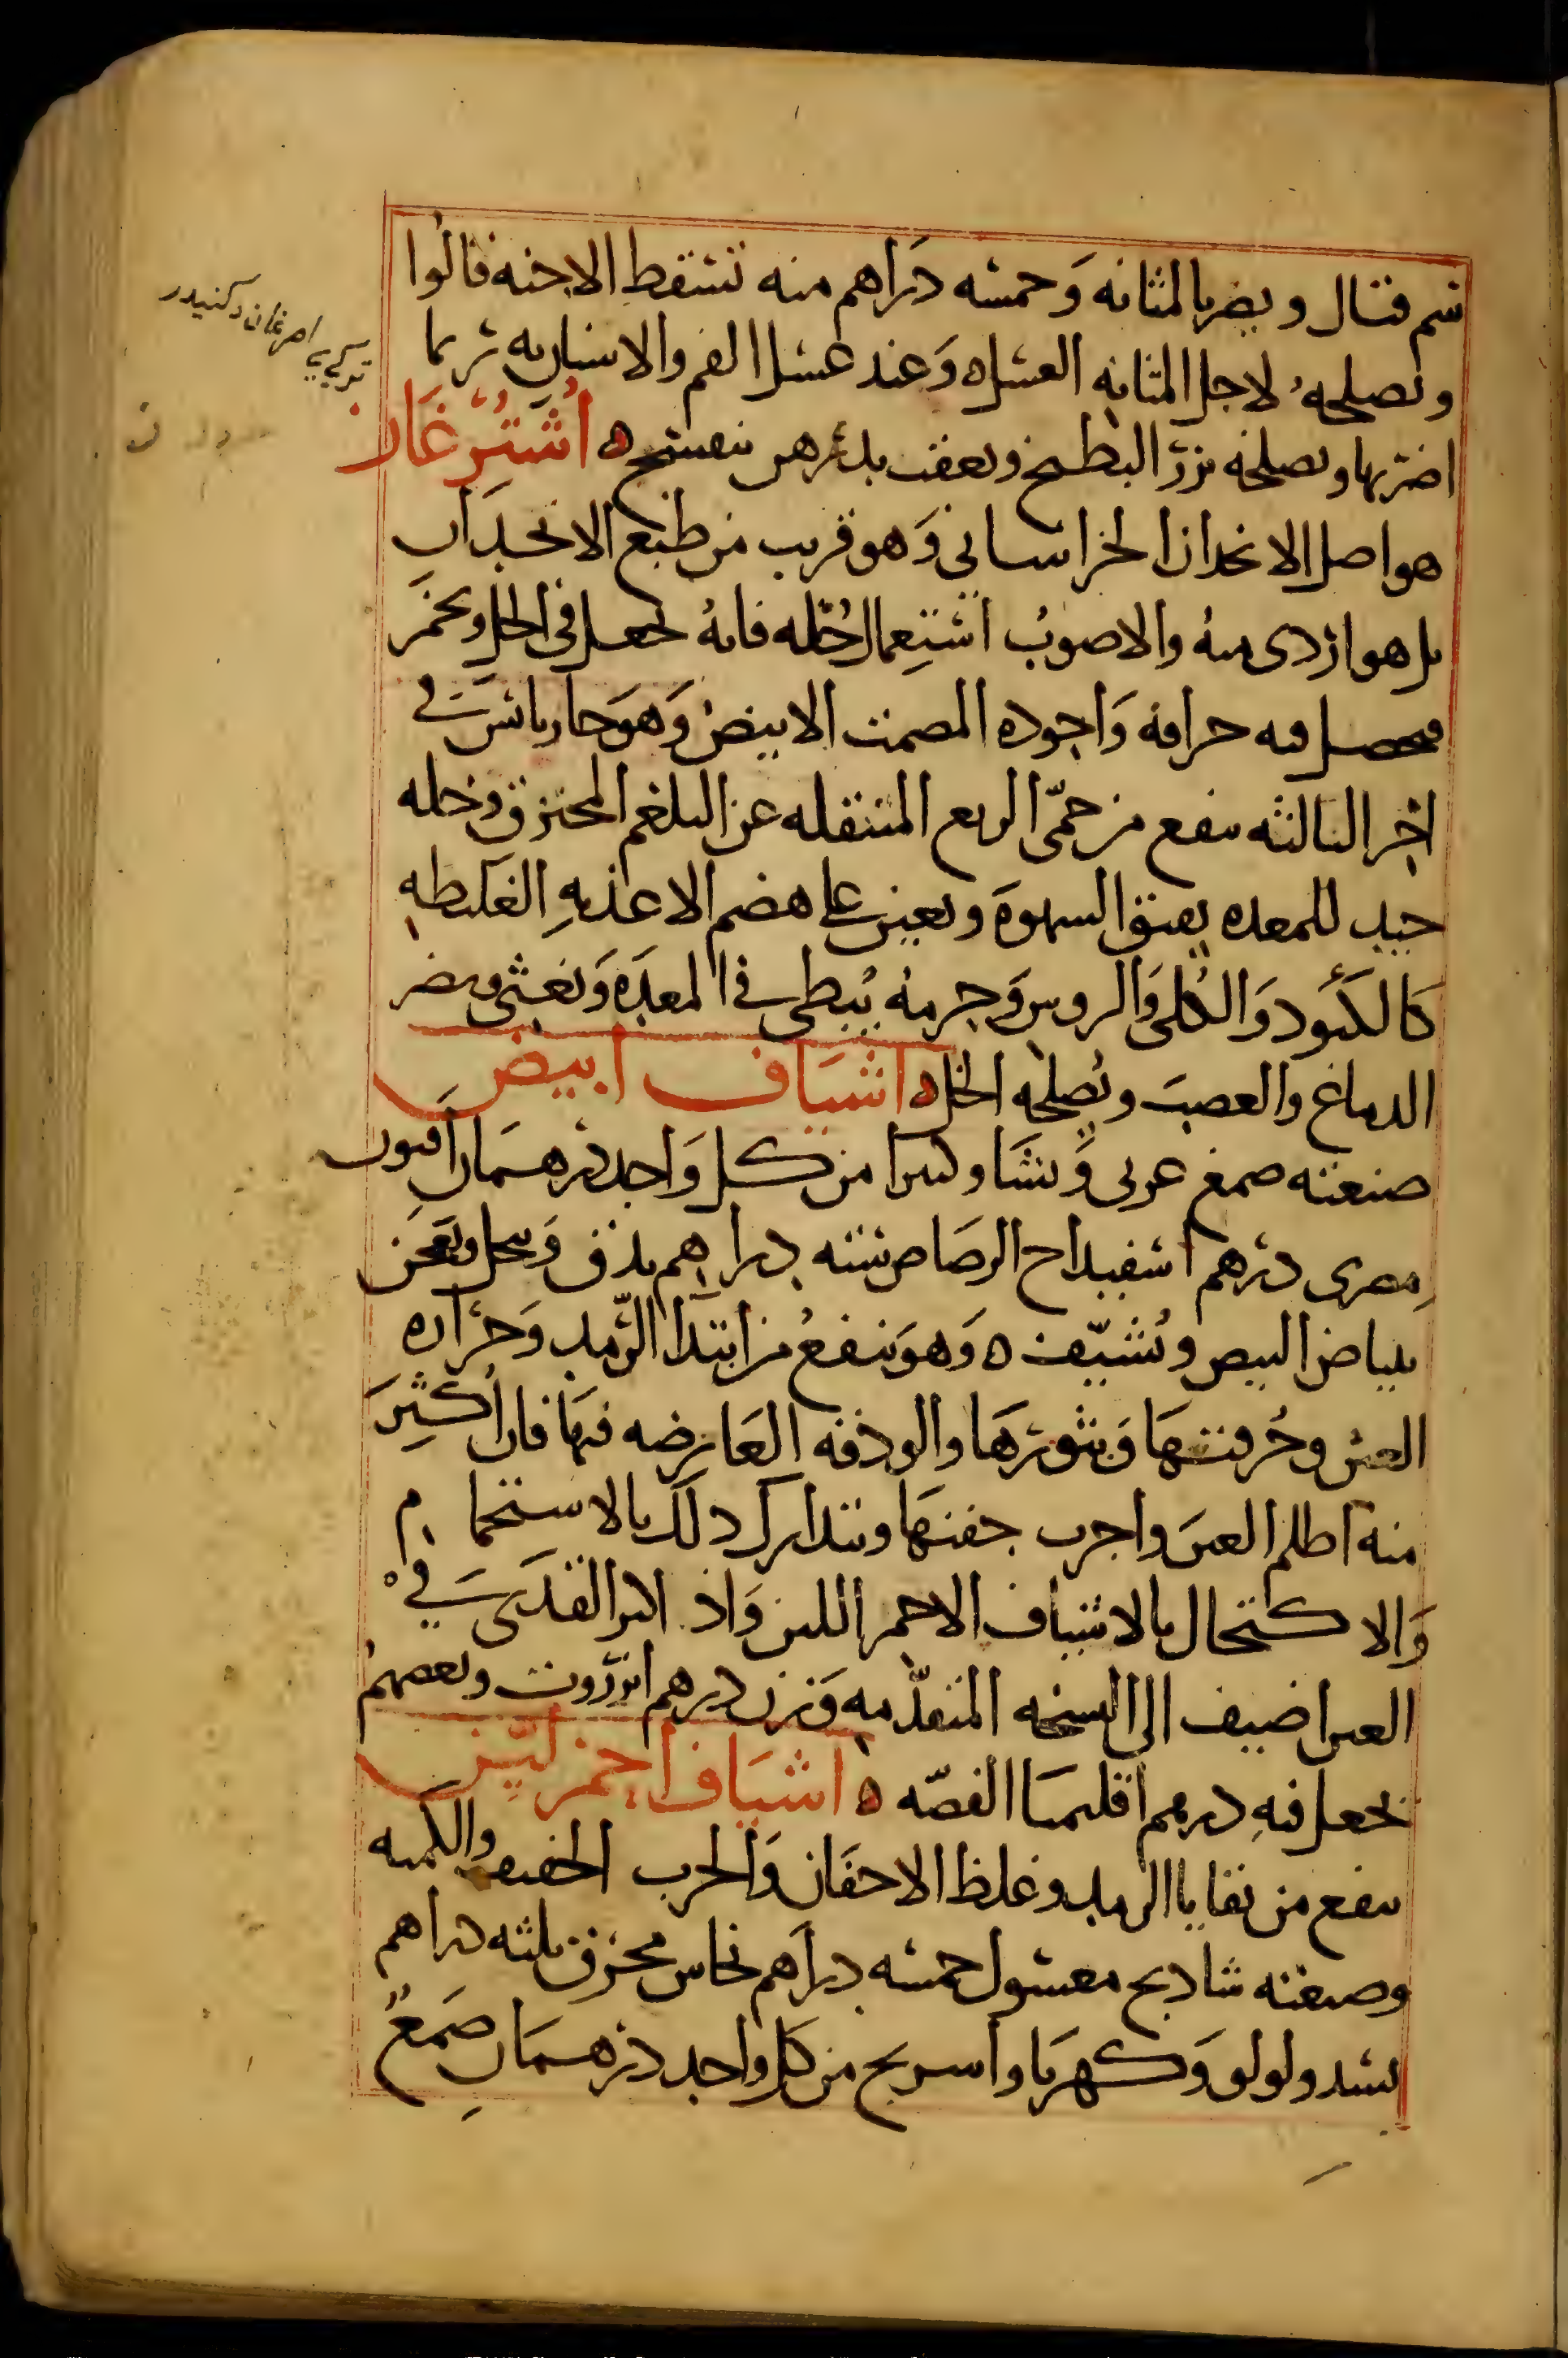 سم قتال ويضر بالمثانه وَخمسه دَراهم منه تسقط الاجنه قالُوا
وتصلحهُ لاجل المثانه العسل ه وَعند غسل الفم والاسنان به ربما
اضر بها ويصلحه بزر البطيخ ويعقب بدهن بنفسج ه أُشتُرْغَاز
هو اصل الانجدان الخراساني وَهو قريب من طبع الانجدان
بل هو اردى منهُ والاصوبُ استِعمال خلّه فانهُ يجعل في الخل ويخمر
فيحصل فيه حرافه وَاجوده المصمت الابيض وَهوَ حار يابس في
اخر الثالثه ينفع من حمّى الربع المتنقله عن البلغم المحترق وخله
جيد للمعده يفتق الشهوة ويعين على هضم الاغذيهِ الغليظه
كالكبود وَالكُلى وَالروس وَجرمهُ يُبطي في المعدَه وَيغثي ويضر
الدماغ والعصب ويُصلحه الخل ه اشيَاف ابيض
صنعته صمغ عربي وَنشَا وكثيرا من كل وَاحد درهمَان اَفيون
مصرى درهم اسفيداج الرصاص ستة دراهم يدق وَينخل ويعجن
ببياض البيض ويُشيّف ه وَهوَ ينفعُ من ابتدا الرّمد وَحرَاره
العين وحُرقتهَا وَبثورهَا والودقه العَارضه فيهَا فان أُكثِرَ
منه اظلم العين واجرب جفنهَا ويتدارك ذلك بالاستحمام
وَالاكتحال بالاشياف الاحمر اللين وَاذا كثر القذَى في
العين اضيف الى النسخه المتقدّمه وَزن درهم انزروت وبعضهُم
يجعل فيهِ درهم اَقليميَا الفضّه ه اَشيَاف احمَر ليّن
ينفع من بقايا الرمد وغلظ الاجفان وَالجرب الخفيف والكمنه
وصنعته شادنج مغسول خمسه دراَهم نحاس محرق ثلثه دراهم
بسد ولولو وَكهربَا واسرنج من كل واحد درهمَان صَمغُ
تركى